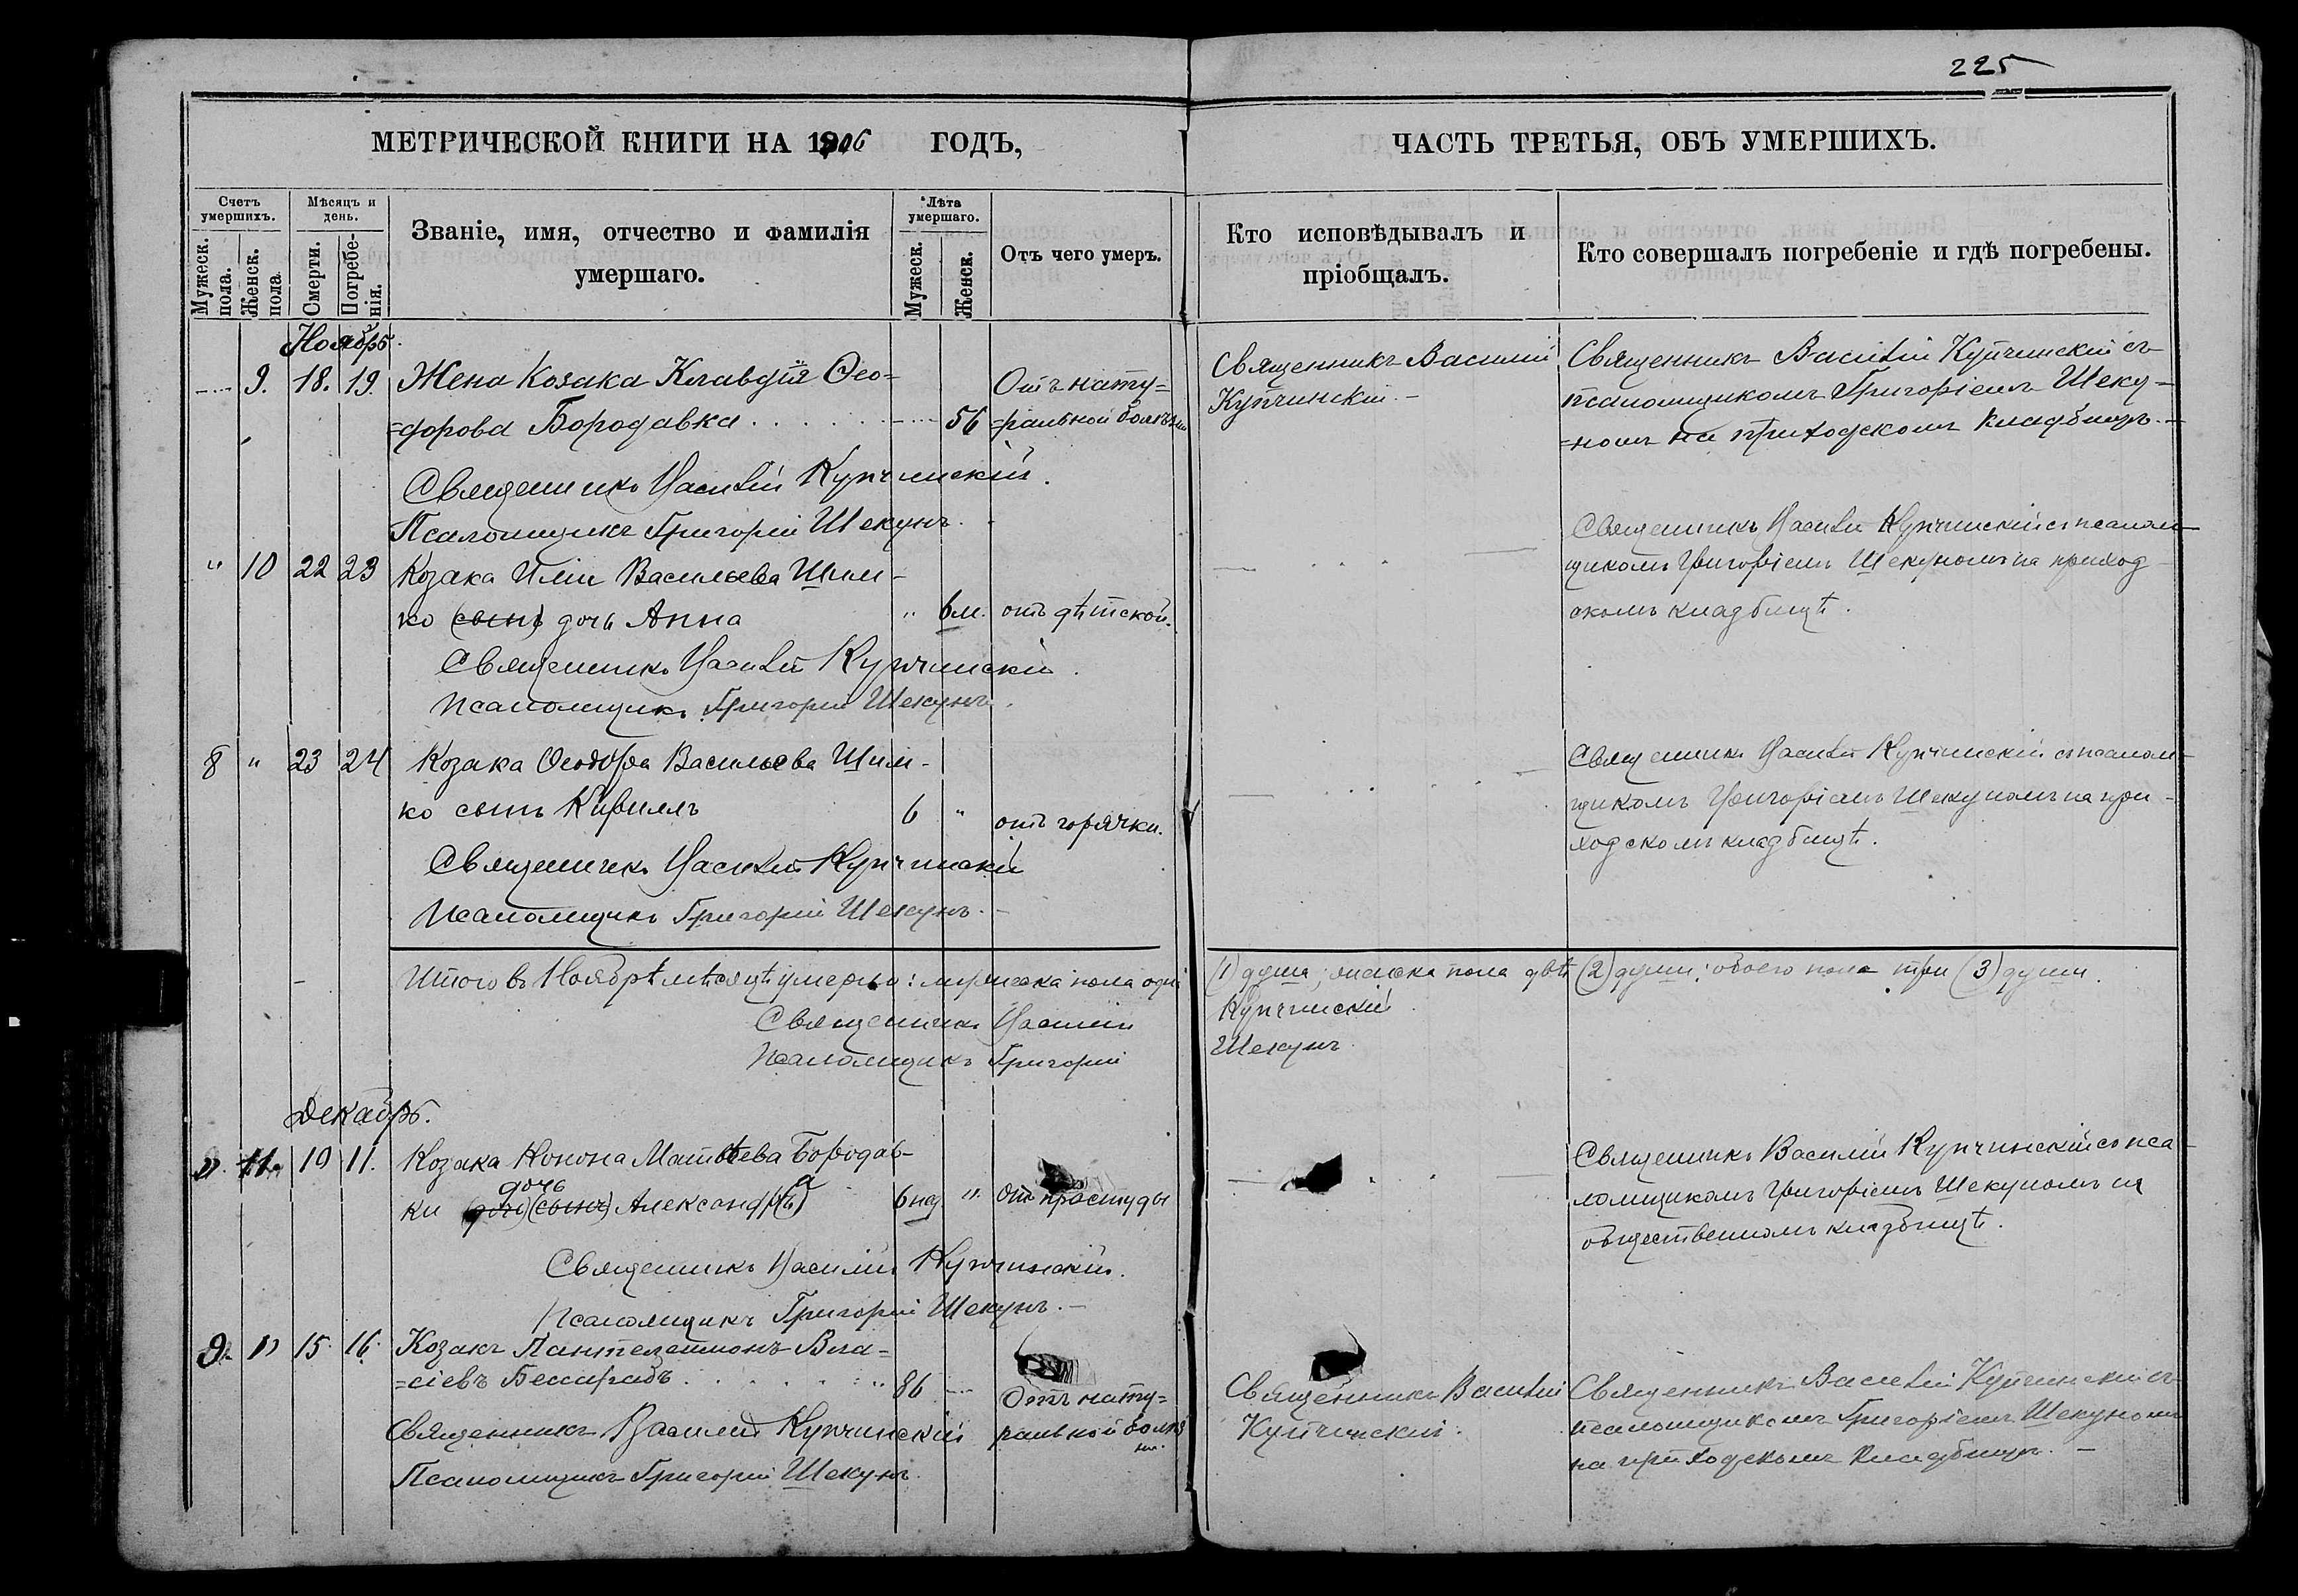 225
МЕТРИЧЕСКОЙ КНИГИ НА 1906 ГОДЪ,
ЧАСТЬ ТРЕТЬЯ, ОБЪ УМЕРШИХЪ.
Счетъ умершихъ.
Мужеск. пола.
Женск. пола
Мѣсяцъ и день.
Смерти.
Погребенія.
Званіе, имя, отчество и фамилія умершаго.
Лѣта умершаго.
Мужеск.
Женск.
Отъ чего умеръ.
Кто исповѣдывалъ и пріобщалъ.
Кто совершалъ погребеніе и гдѣ погребены.
Ноябрь.
9. 18. 19. Жена Козака Клавдія Ѳео=
=дорова Бородавка 56
Отъ нату=
=ральной болѣзни
Священникъ Василій
Купчинскій. -
Священникъ Василій Купчинскій съ
псаломщикомъ Григоріемъ Шеку=
=номъ на приходскомъ кладбищѣ. -
Священникъ Василій Купчинскій.
Псаломщикъ Григорій Шекунъ.
" 10 22 23 Козака Иліи Васильева Шим-
ко (сынъ) дочь Анна " 6 м. отъ дѣтской.
Священникъ Василій Купчинскій съ псалом-
щикомъ Григоріемъ Шекуномъ на приход-
скомъ кладбищѣ.
Священникъ Василій Купчинскій.
Псаломщикъ Григорій Шекунъ.
8 " 23 24 Козака Ѳеодора Васильева Шим-
ко сынъ Кириллъ 6 " отъ горячки.
Священникъ Василій Купчинскій съ псалом-
щикомъ Григоріемъ Шекуномъ на при-
ходскомъ кладбищѣ.
Священникъ Василій Купчинскій
Псаломщикъ Григорій Шекунъ. -
Итого въ Ноябрѣ мѣсяцѣ умерло: мужеска пола одна (1) душа; женска пола двѣ (2) души; обоего пола три (3) души.
Священникъ Василій Купчинскій
Псаломщикъ Григорій Шекунъ
Декабрь.
" 11. 10 11. Козака Конона Матвѣева Бородав-
ки (дочь) (сынъ) дочь Александр(ъ)а 6 нед. " отъ простуды
Священникъ Василій Купчинскій съ пса-
ломщикомъ Григоріемъ Шекуномъ на
общественномъ кладбищѣ.
Священникъ Василій Купчинскій.
Псаломщикъ Григорій Шекунъ. -
9. " 15. 16. Козакъ Пантелеимонъ Вла=
=сіевъ 86
Отъ нату=
ральной болѣз
ни.
Священникъ Василій
Купчинскій.
Священникъ Василій Купчинскій съ
псаломщикомъ Григоріемъ Шекуномъ
на приходскомъ кладбищѣ. -
Священникъ Василій Купчинскій
Псаломщикъ Григорій Шекунъ.